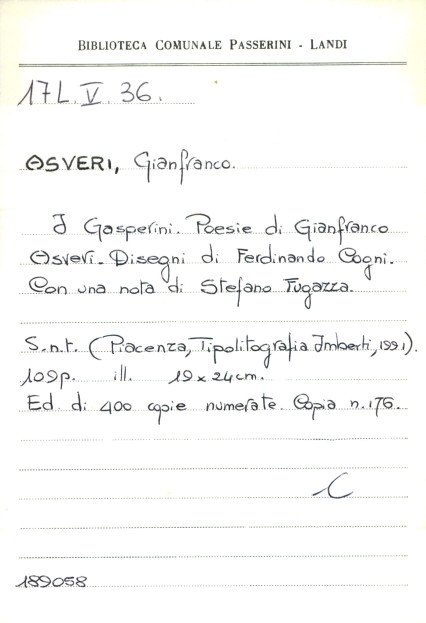 BIBLIOTECA COMUNALE PASSERINI - LANDI
17L.V.36.
ASVERI, Gianfranco.
I Gasperini. Poesie di Gianfranco
Asveri. Disegni di Ferdinando Cogni.
Con una nota di Stefano Fugazza.
S.n.t. (Piacenza, Tipolitografia Imberti, 1991).
109p. ill. 19x24cm.
Ed. di 400 copie numerate. Copia n.176.
C
189058